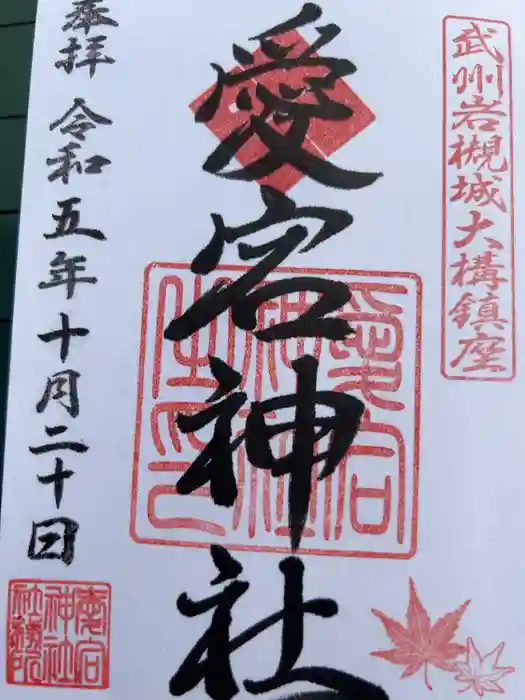 武州岩槻城大構鎮座
愛宕神社
愛宕神社之印
奉拝 令和五年十月二十日
愛宕神社社務所